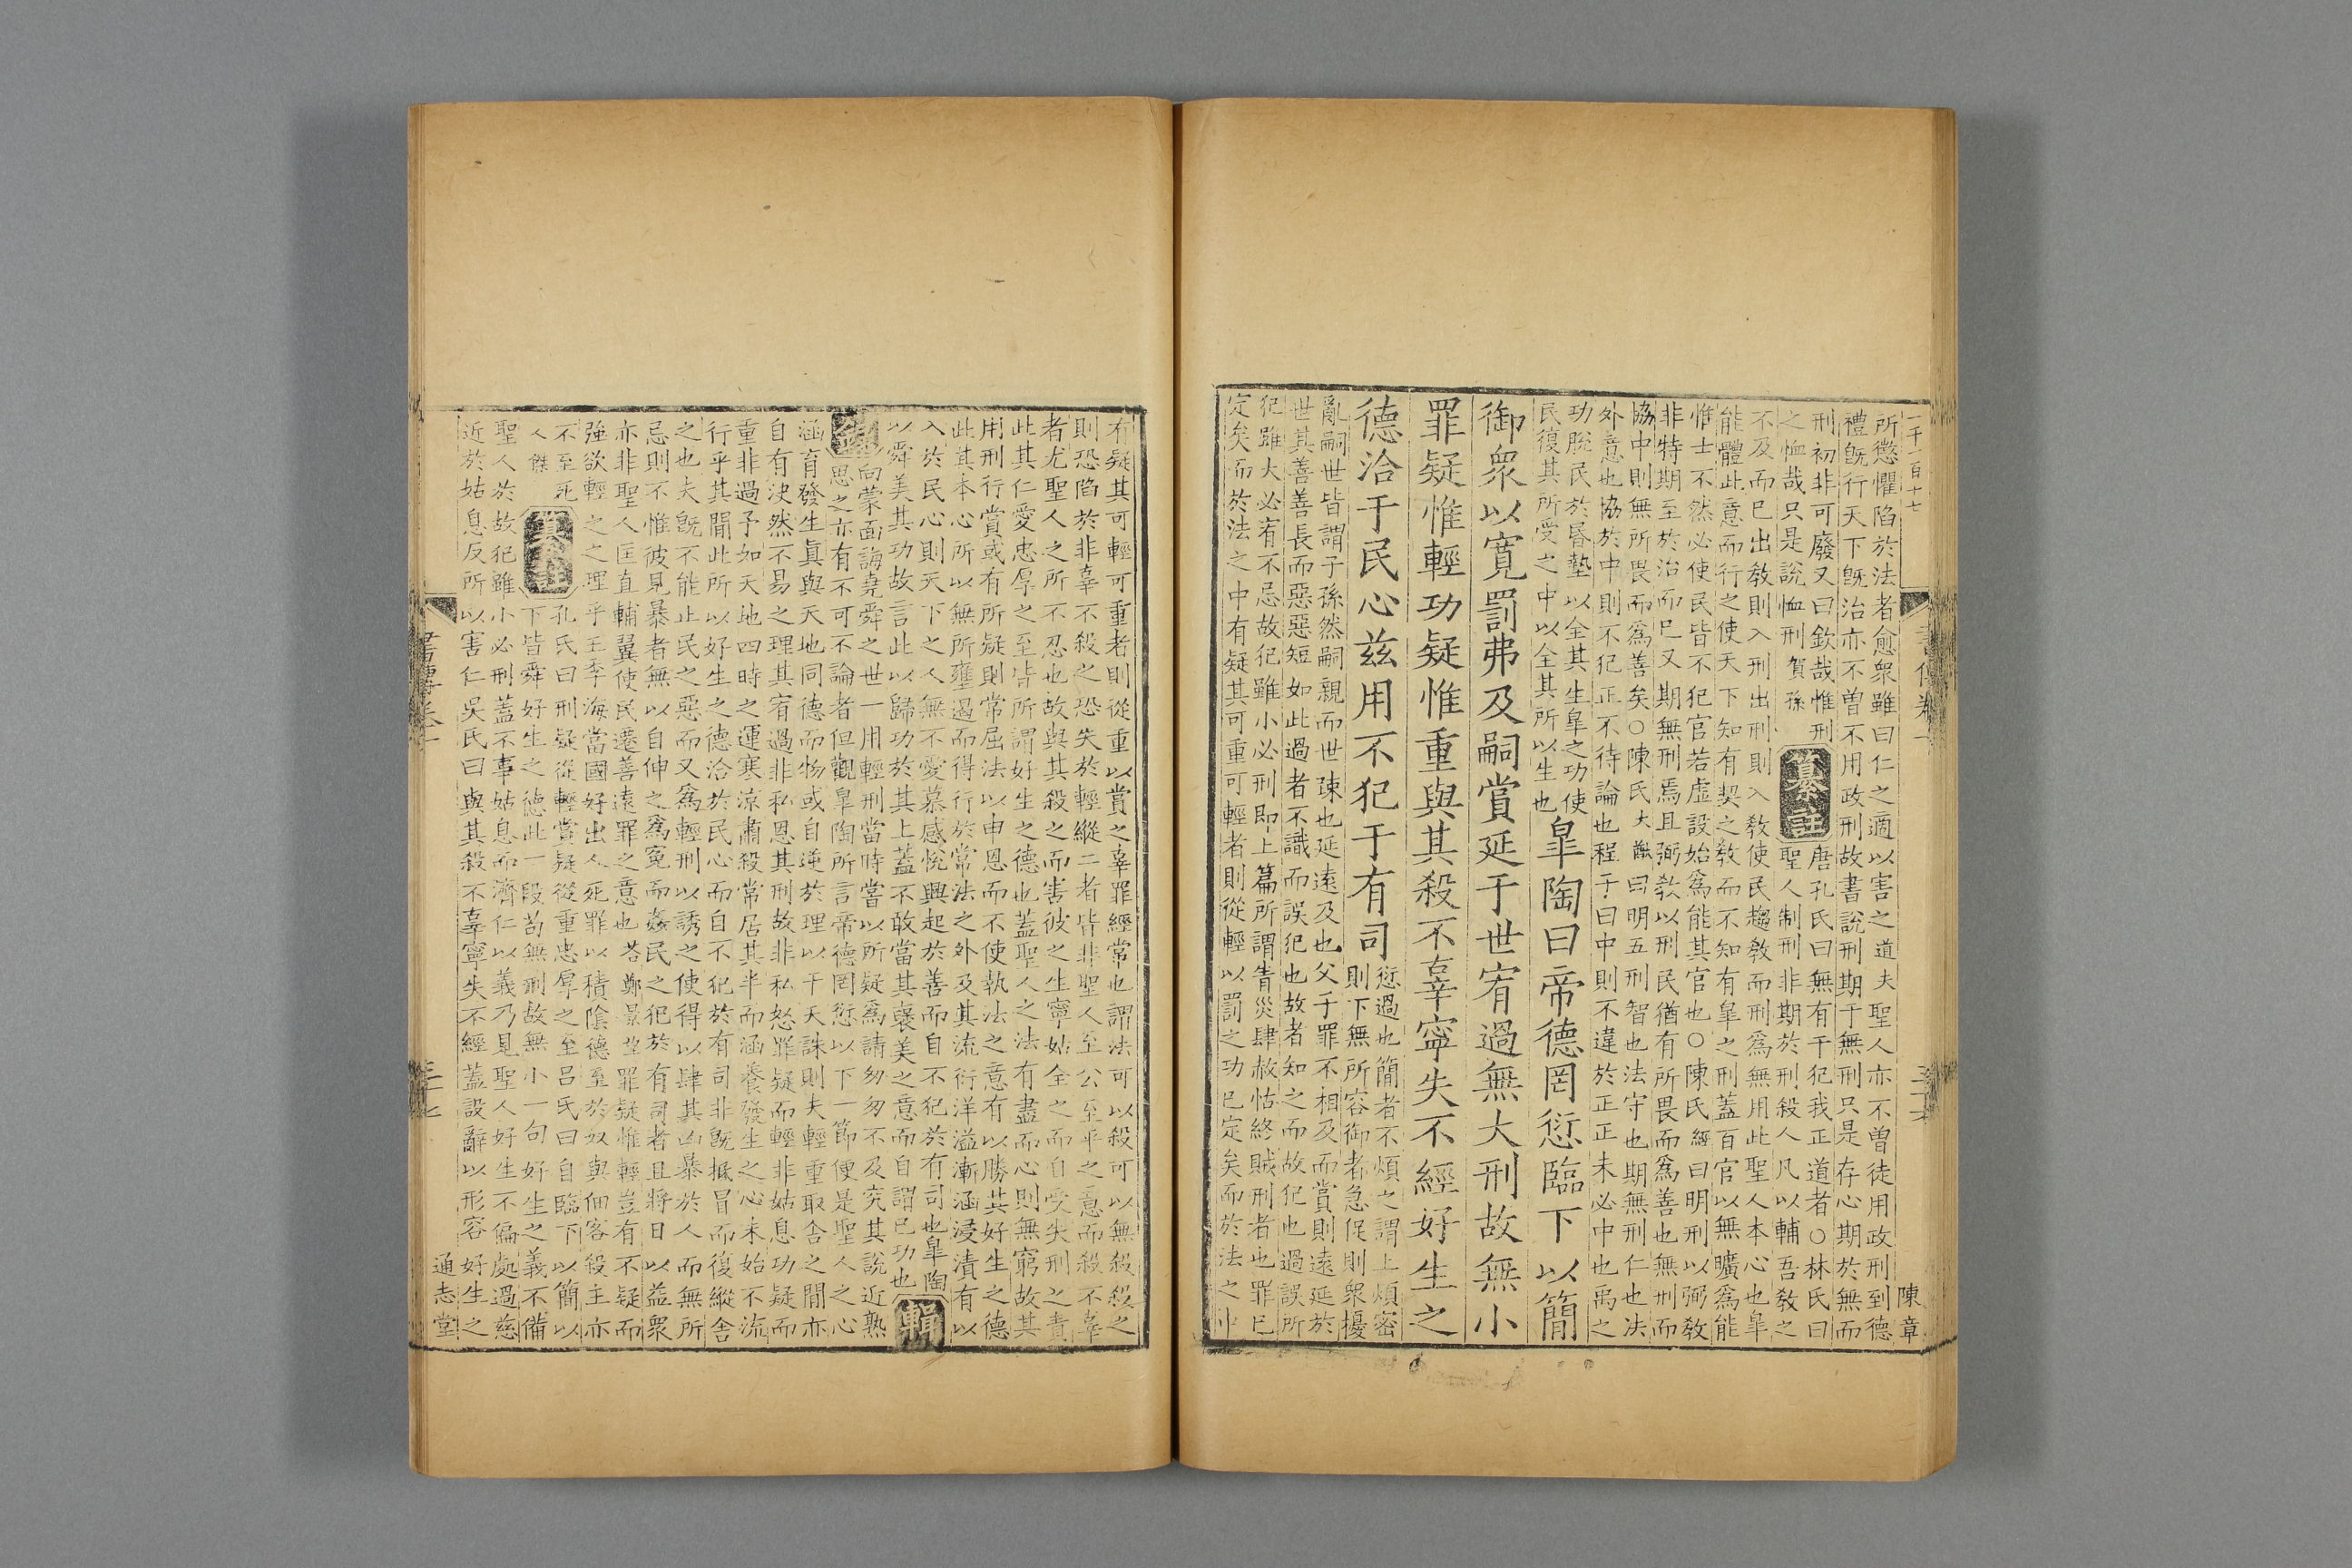 一千一百十七
所懲懼陷於法者愈衆雖曰仁之適以害之道夫聖人亦不曾徒用政刑到德
禮旣行天下旣治亦不曾不用政刑故書說刑期于無刑只是存心期於無而
刑初非可廢又曰欽哉惟刑
之恤哉只是說恤刑賀孫
纂註
唐孔氏曰無有干犯我正道者○林氏曰
聖人制刑非期於刑殺人凡以輔吾敎之
不及而已出敎則入刑出刑則入敎使民趨敎而刑爲無用此聖人本心也皐
能體此意而行之使天下知有契之敎而不知有皐之刑蓋百官以無曠爲能
惟士不然必使民皆不犯官若虛設始爲能其官也○陳氏經曰明刑以弼敎
非特期至於治而已又期無刑焉且弼敎以刑民猶有所畏而爲善也無刑而
協中則無所畏而爲善矣○陳氏大猷曰明五刑智也法守也期無刑仁也决
外意也協於中則不犯正不待論也程子曰中則不違於正正未必中也禹之
功脫民於昏墊以全其生皐之功使
民復其所受之中以全其所以生也
皐陶曰帝德罔愆臨下以簡
御衆以寬罰弗及嗣賞延于世宥過無大刑故無小
罪疑惟輕功疑惟重與其殺不辜寧失不經好生之
德洽于民心茲用不犯于有司
愆過也簡者不煩之謂上煩密
則下無所容御者急促則衆擾
亂嗣世皆謂子孫然嗣親而世疎也延遠及也父子罪不相及而賞則遠延於
世其善善長而惡惡短如此過者不識而誤犯也故者知之而故犯也過誤所
犯雖大必宥不忌故犯雖小必刑卽上篇所謂眚災肆赦怙終賊刑者也罪已
定矣而於法之中有疑其可重可輕者則從輕以罰之功已定矣而於法之中
陳章
有疑其可輕可重者則從重以賞之辜罪經常也謂法可以殺可以無殺殺之
則恐陷於非辜不殺之恐失於輕縱二者皆非聖人至公至平之意而殺不辜
者尤聖人之所不忍也故與其殺之而害彼之生寧姑全之而自受失刑之責
此其仁愛忠厚之至皆所謂好生之德也蓋聖人之法有盡而心則無窮故其
用刑行賞或有所疑則常屈法以申恩而不使執法之意有以勝其好生之德
此其本心所以無所壅遏而得行於常法之外及其流衍洋溢漸涵浸漬有以
入於民心則天下之人無不愛慕感悅興起於善而自不犯於有司也皐陶
以舜美其功故言此以歸功於其上蓋不敢當其襃美之意而自謂己功也
輯
向蒙面誨堯舜之世一用輕刑當時嘗以所疑爲請匆匆不及究其說近熟
思之亦有不可不論者但觀皐陶所言帝德罔愆以下一節便是聖人之心
涵育發生眞與天地同德而物或自逆於理以干天誅則夫輕重取舍之閒亦
自有決然不易之理其宥過非私恩其刑故非私怒罪疑而輕非姑息功疑而
重非過予如天地四時之運寒涼肅殺常居其半而涵養發生之心未始不流
行乎其閒此所以好生之德洽於民心而自不犯於有司非旣抵冒而復縱舍
之也夫旣不能止民之惡而又爲輕刑以誘之使得以肆其凶暴於人而無所
忌則不惟彼見暴者無以自伸之爲冤而姦民之犯於有司者且將日以益衆
亦非聖人匡直輔翼使民遷善遠罪之意也答鄭景望罪疑惟輕豈有不疑而
強欲輕之之理乎王季海當國好出人死罪以積陰德至於奴與佃客殺主亦
不至死
人傑
纂註
孔氏曰刑疑從輕賞疑從重忠厚之至呂氏曰自臨下以簡以
下皆舜好生之德此一段苟無刑故無小一句好生之義不備
聖人於故犯雖小必刑蓋不事姑息而濟仁以義乃見聖人好生不偏處過慈
近於姑息反所以害仁吳氏曰與其殺不辜寧失不經蓋設辭以形容好生之
通志堂